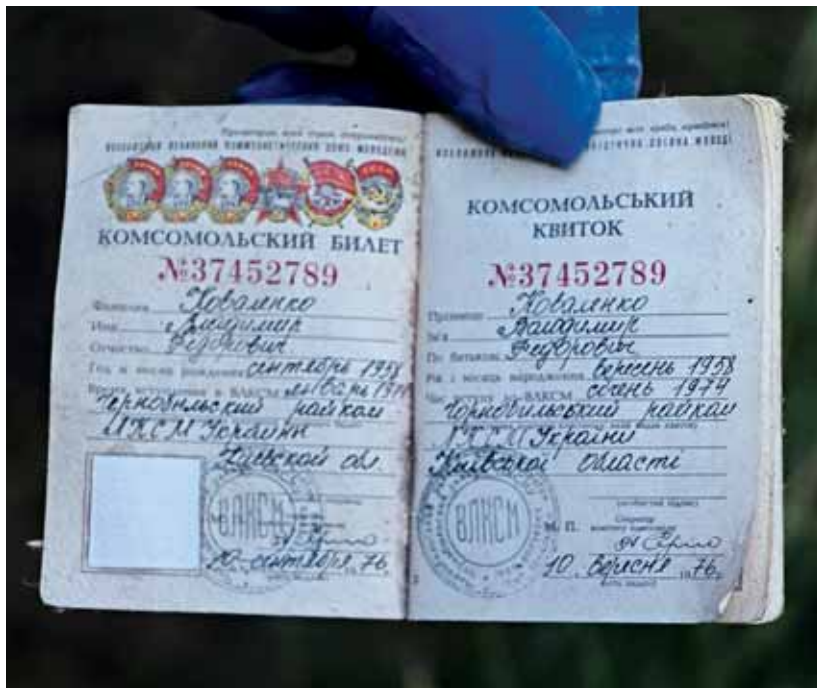 Пролетарии всех стран, соединяйтесь!
ВСЕСОЮЗНЫЙ ЛЕНИНСКИЙ КОММУНИСТИЧЕСКИЙ СОЮЗ МОЛОДЕЖИ
КОМСОМОЛЬСКИЙ БИЛЕТ
№37452789
Фамилия Коваленко
Имя Владимир
Отчество Федорович
Год и месяц рождения сентябрь 1958
Время вступления в ВЛКСМ январь 1974
Чернобыльский райком
ЛКСМ Украины
Киевской обл.
ВЛКСМ
10 сентября 1976
КОМСОМОЛЬСЬКИЙ
КВИТОК
№37452789
Прізвище Коваленко
Ім'я Володимир
По батькові Федорович
Рік і місяць народження вересень 1958
Час вступу до ВЛКСМ січень 1974
Чорнобильський райком
ЛКСМ України
Київської області
(особистий підпис)
ВЛКСМ
М. П.
Секретар
10 вересня 1976